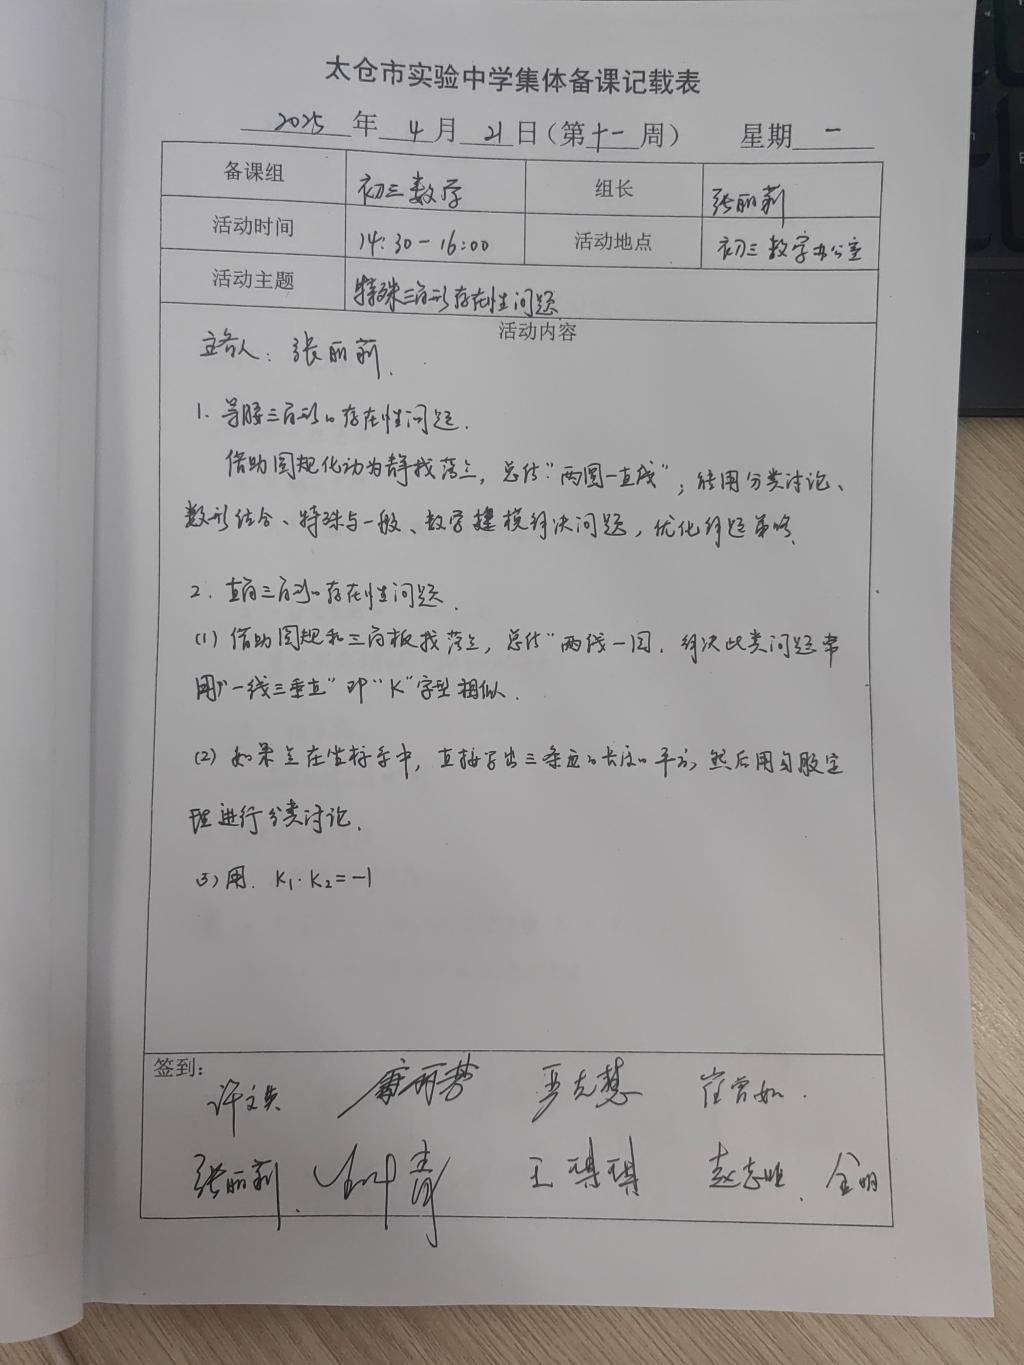 太仓市实验中学集体备课记载表
2025年4月21日（第十一周） 星期一
备课组 初三数学 组长 张丽莉
活动时间 14:30-16:00 活动地点 初三数学办公室
活动主题 特殊三角形存在性问题
活动内容
主备人：张丽莉.
1. 等腰三角形的存在性问题.
借助圆规化动为静找落点，总结“两圆一直线”；能用分类讨论、
数形结合、特殊与一般、数学建模解决问题，优化解题策略.
2. 直角三角形的存在性问题.
(1) 借助圆规和三角板找落点，总结“两线一圆. 解决此类问题常
用“一线三垂直”即“K”字型相似.
(2) 如果点在坐标系中，直接写出三条边的长度的平方，然后用勾股定
理进行分类讨论.
(3) 用. K₁·K₂=-1
签到：
许文英 康丽芬 严克慧
张丽莉. 王琪琪 赵志明. 金明